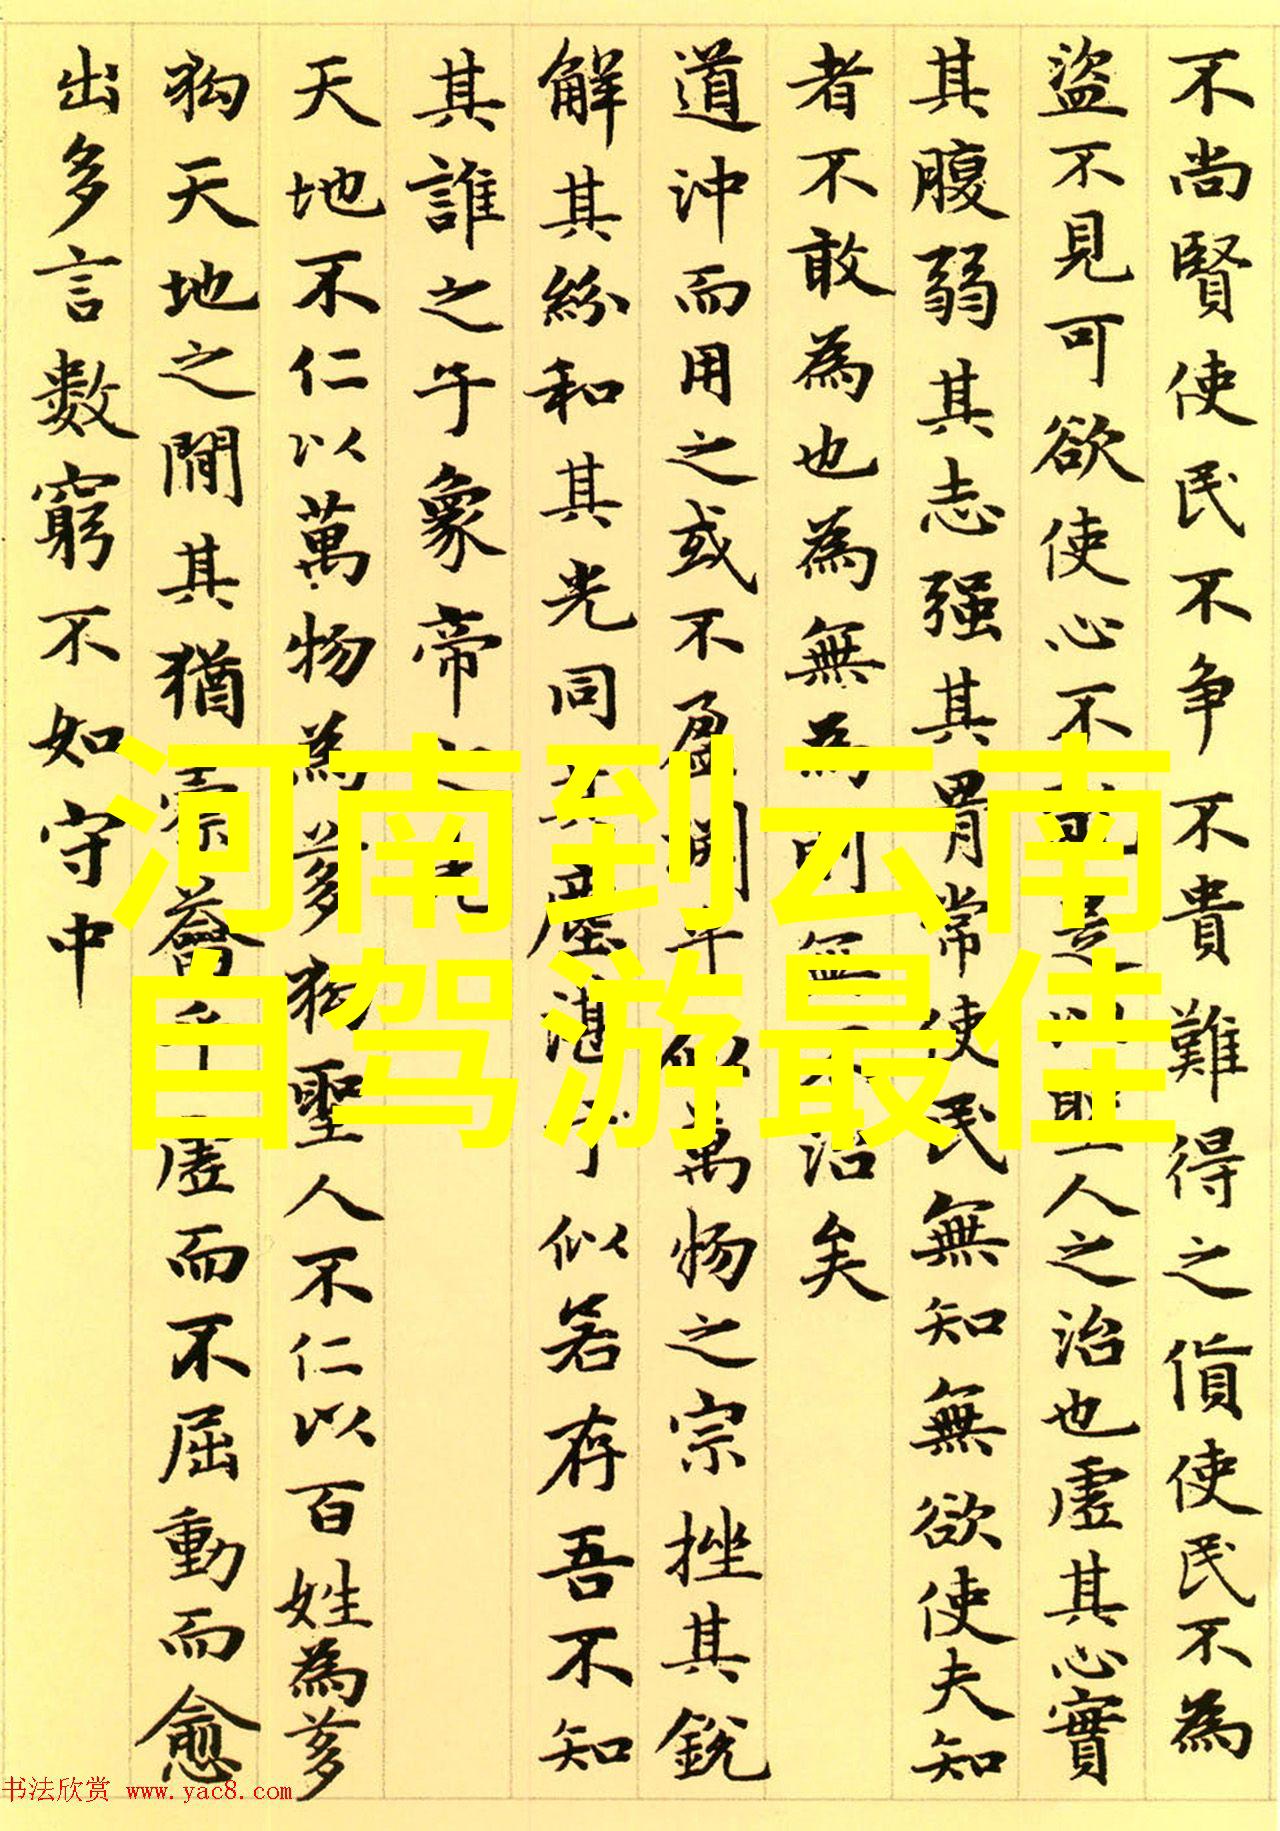 不尚賢使民不争不貴難得之貨使民不為
盜不見可欲使心不亂是以聖人之治也虛其心實
其腹弱其志强其骨常使民無知無欲使夫知
者不敢為也為無為則無不治矣
道沖而用之或不盈淵乎似萬物之宗挫其銳
解其紛和其光同其塵湛乎似若存吾不知
其誰之子象帝之先
天地不仁以萬物為芻狗聖人不仁以百姓為芻
狗天地之閒其猶橐籥乎虛而不屈動而愈
出多言數窮不如守中
河南到云南
自驾游最佳
书法欣赏 www.yac8.com